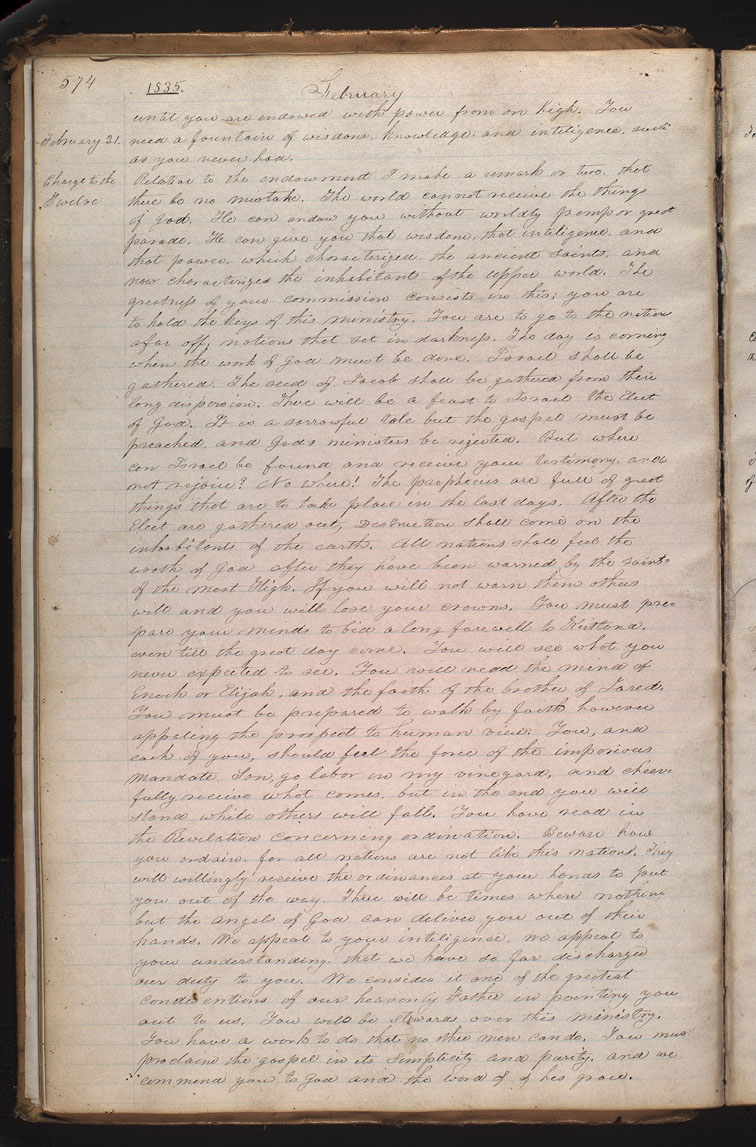 574
1835.
February
until you are endowed with power from on high. You
February 21.
need a fountain of wisdom, knowledge and inteligence, such
as you never had.
Charge to the
Relative to the endowment I make a remark or two, that
Twelve
there be no mistake. The world cannot receive the things
of God. He can endow you without worldly pomp or great
parade. He can give you that wisdom, that inteligence, and
that power, which characterized the ancient saints, and
now characterizes the inhabitants of the upper world. The
greatness of your commission consists in this; you are
to hold the keys of this ministry. You are to go to the nations
afar off; nations that set in darkness. The day is coming
when the work of God must be done. Israel shall be
gathered. The seed of Jacob shall be gathered from their
long dispersion. There will be a feast to Israel the Elect
of God. It is a sorrowful tale but the gospel must be
preached, and God's ministers be rejected. But where
can Israel be found and receive your testimony, and
not rejoice? No where! The prophecies are full of great
things that are to take place in the last days. After the
Elect are gathered out, Destruction shall come on the
inhabitents of the earth. All nations shall feel the
wrath of God after they have been warned by the saints
of the most High. If you will not warn them others
will and you will lose your crowns. You must pre-
pare your minds to bid a long farewell to Kirtland,
even till the great day come. You will see what you
never expected to see. You will need the mind of
Enoch or Elijah, and the faith of the brother of Jared.
You must be prepared to walk by faith however
appaling the prospect to human view. You, and
each of you, should feel the force of the imperious
mandate. Son, go labor in my vineyard, and cheer-
fully receive what comes, but in the end you will
stand while others will fall. You have read in
the Revelation concerning ordination. Beware how
you ordain, for all nations are not like this nation. They
will willingly receive the ordinances at your hands to put
you out of the way. There will be times when nothing
but the angels of God can deliver you out of their
hands. We appeal to your inteligence, we appeal to
your understanding, that we have so far discharged
our duty to you. We consider it one of the greatest
condecentions of our heavenly Father in pointing you
out to us. You will be stewards over this ministry.
You have a work to do that no other men can do. You must
proclaim the gospel in its simplicity and purity, and we
commend you to God and the word of of his grace.